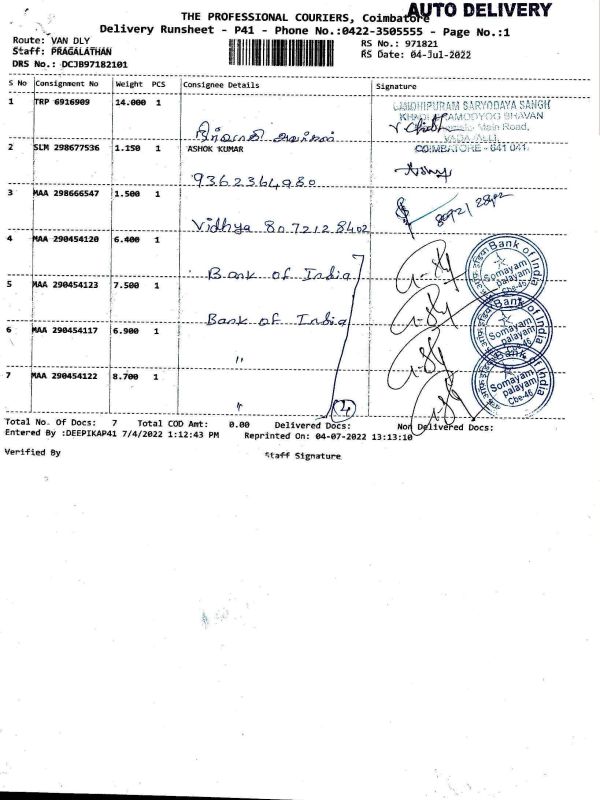 AUTO DELIVERY
THE PROFESSIONAL COURIERS, Coimbatore
Delivery Runsheet - P41 - Phone No.:0422-3505555 - Page No.:1
Route: VAN DLY
Staff: PRAGALATHAN
DRS No.: DCJB97182101
RS No.: 971821
RS Date: 04-Jul-2022
S No Consignment No Weight PCS Consignee Details Signature
1 TRP 6916909 14.000 1
SARVODAYA SANGH
BHAVAN
Main Road,
COIMBATORE - 641 041.
2 SLM 298677536 1.150 1 ASHOK KUMAR
9362364980
3 MAA 298666547 1.500 1
Vidhya 8072128402
4 MAA 290454120 6.400 1
Bank of India
Bank of India
Somayam
palayam
Cbe-46
5 MAA 290454123 7.500 1
Bank of India
Bank of India
Somayam
palayam
6 MAA 290454117 6.900 1
"
Bank of India
Somayam
palayam
Cbe-46
7 MAA 290454122 8.700 1
"
(4)
Total No. Of Docs: 7 Total COD Amt: 0.00 Delivered Docs: Non Delivered Docs:
Entered By :DEEPIKAP41 7/4/2022 1:12:43 PM Reprinted On: 04-07-2022 13:13:10
Verified By Staff Signature